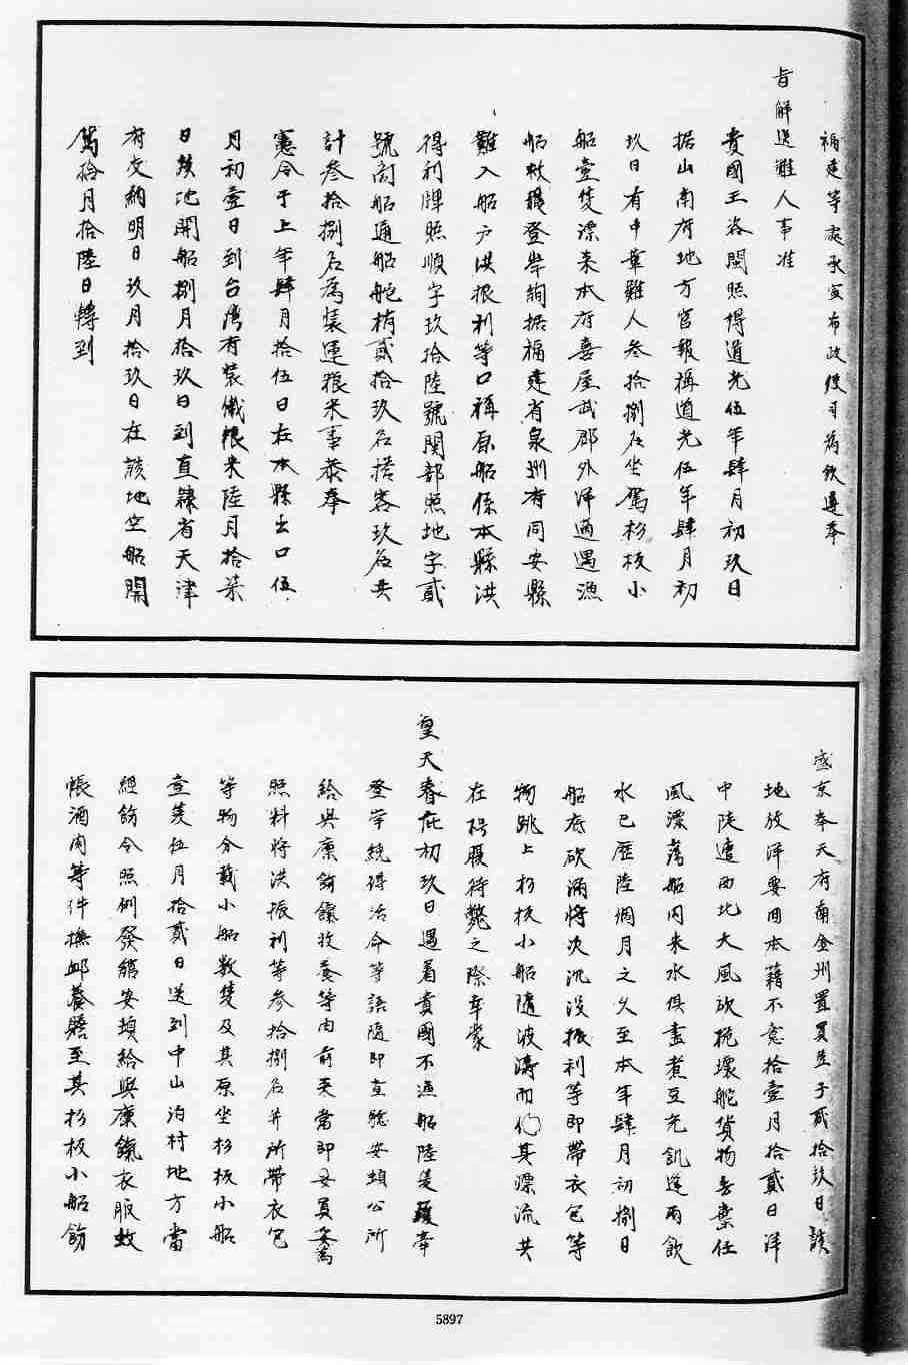 福建等處承宣布政使司為欽遵奉
旨解送難人事准
貴國王咨開照得道光伍年肆月初玖日
据山南府地方官報稱道光伍年肆月初
玖日有中華難人叁拾捌名坐駕杉板小
船壹隻漂来本府喜屋武郡外洋適遇漁
船救護登岸詢据福建省泉州府同安縣
難入船户洪振利等口稱原船係本縣洪
得利牌照順字玖拾陸號関部照地字貳
號商船通船舵梢貳拾玖名搭客玖名共
計叁拾捌名為裝運粮米事恭奉
憲令于上年肆月拾伍日在本縣出口伍
月初壹日到台湾府裝儎粮米陸月拾柒
日該地開船捌月拾玖日到直隸省天津
府交納明白玖月拾玖日在該地空船開
駕拾月拾陸日轉到
盛京奉天府南金州置買荳子貳拾玖日該
地放洋要回本籍不意拾壹月拾貳日洋
中陡遭西北大風砍桅壞舵貨物丟棄任
風漂蕩船内米水俱盡煮豆充飢逢雨飲
水已歷陸個月之久至本年肆月初捌日
船底砍漏將次沉没振利等即帶衣包等
物跳上杉板小船隨波濤而 其漂流共
在 腹待斃之際幸蒙
皇天眷庇初玖日遇着貴國不漁船陸隻護牽
登岸統得活命等語隨即查驗安頓公所
給與廩餼 收養等由前来當即 員 為
照料將洪振利等叁拾捌名并所帶衣包
等物分載小船数隻及其原坐杉板小船
壹隻伍月拾貳日送到中山泊村地方當
經飭令照例發舘安頓給與廩餼衣服蚊
帳酒肉等件撫卹養贍至其杉板小船飭
5897